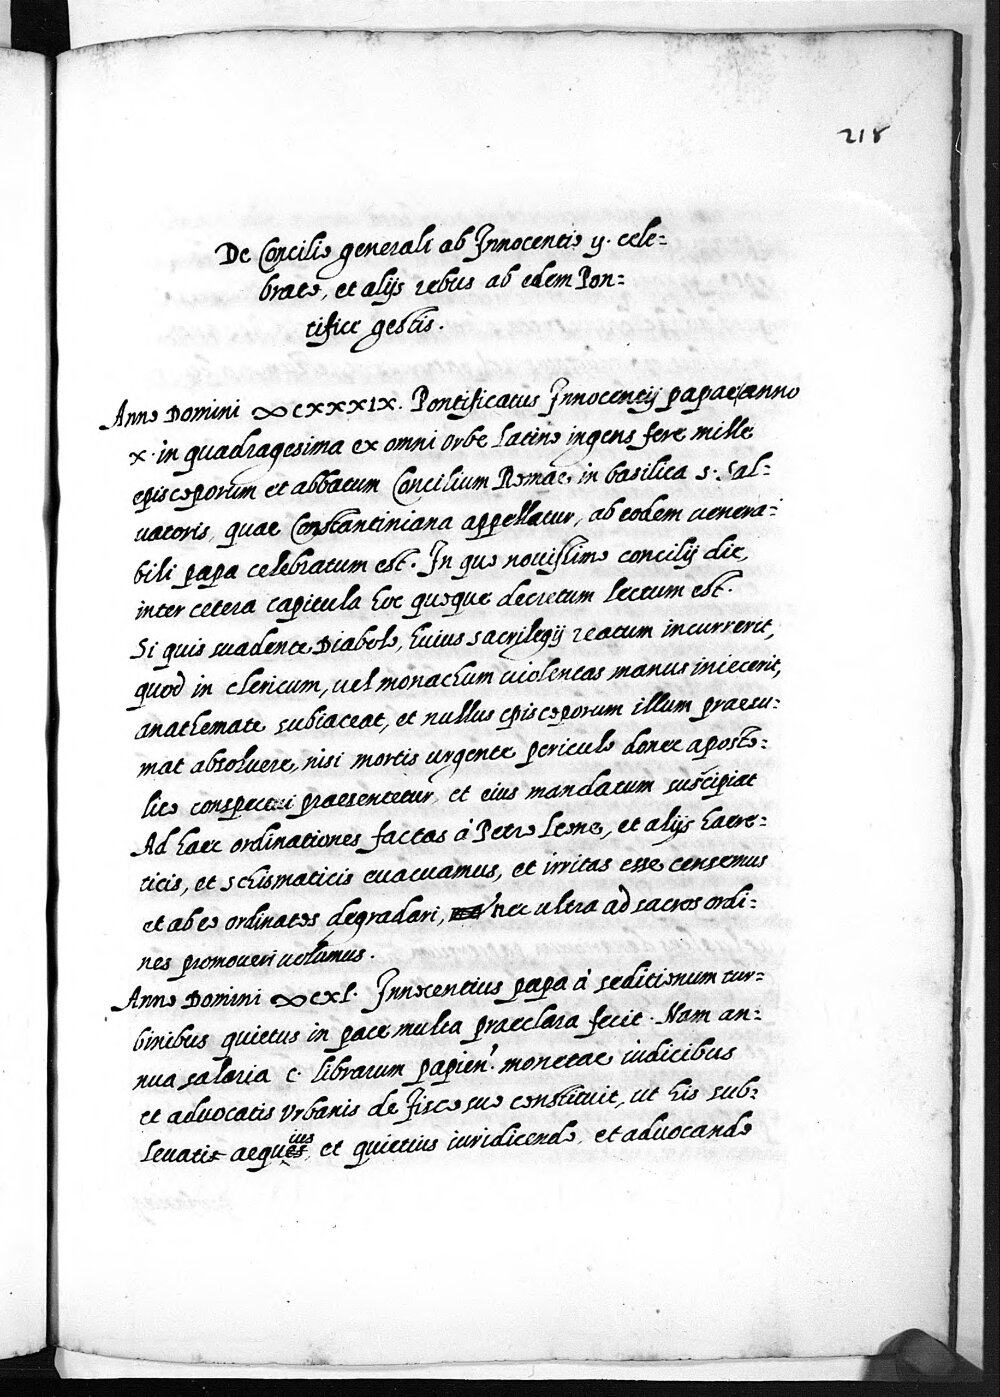 218
De Concilio generali ab Innocentio ij. cele-
brato, et alijs rebus ab edem Pon-
tifice gestis.
Anno Domini ∞cxxxix. Pontificatus Innocentij papae anno
x. in quadragesima ex omni orbe latino ingens fere mille
episcoporum et abbatum Concilium Romae in basilica s. Sal-
uatoris, quae Constantiniana appellatur, ab eodem uenera-
bili papa celebratum est. In quo nouissimo concilij die,
inter cetera capitula hoc quoque decretum lectum est.
Si quis suadente Diabolo, huius sacrilegij reatum incurrerit,
quod in clericum, uel monachum uiolentas manus iniecerit,
anathemate subiaceat, et nullus episcoporum illum praesu-
mat absoluere, nisi mortis urgente periculo donec aposto-
lico conspectui praesentetur, et eius mandatum suscipiat
Ad haec ordinationes factas à Petro leone, et alijs haere-
ticis, et schismaticis euacuamus, et irritas esse censemus
et ab eo ordinatos degradari, nec ultra ad sacros ordi-
nes promoueri uolumus.
Anno Domini ∞cxl. Innocentius papa à seditionum tur-
binibus quietus in pace multa praeclara fecit. Nam an-
nua salaria c. librarum papien. monetae iudicibus
et aduocatis urbanis de fisco suo constituit, ut his sub-
leuatis aequius et quietius iuridicendo, et aduocando